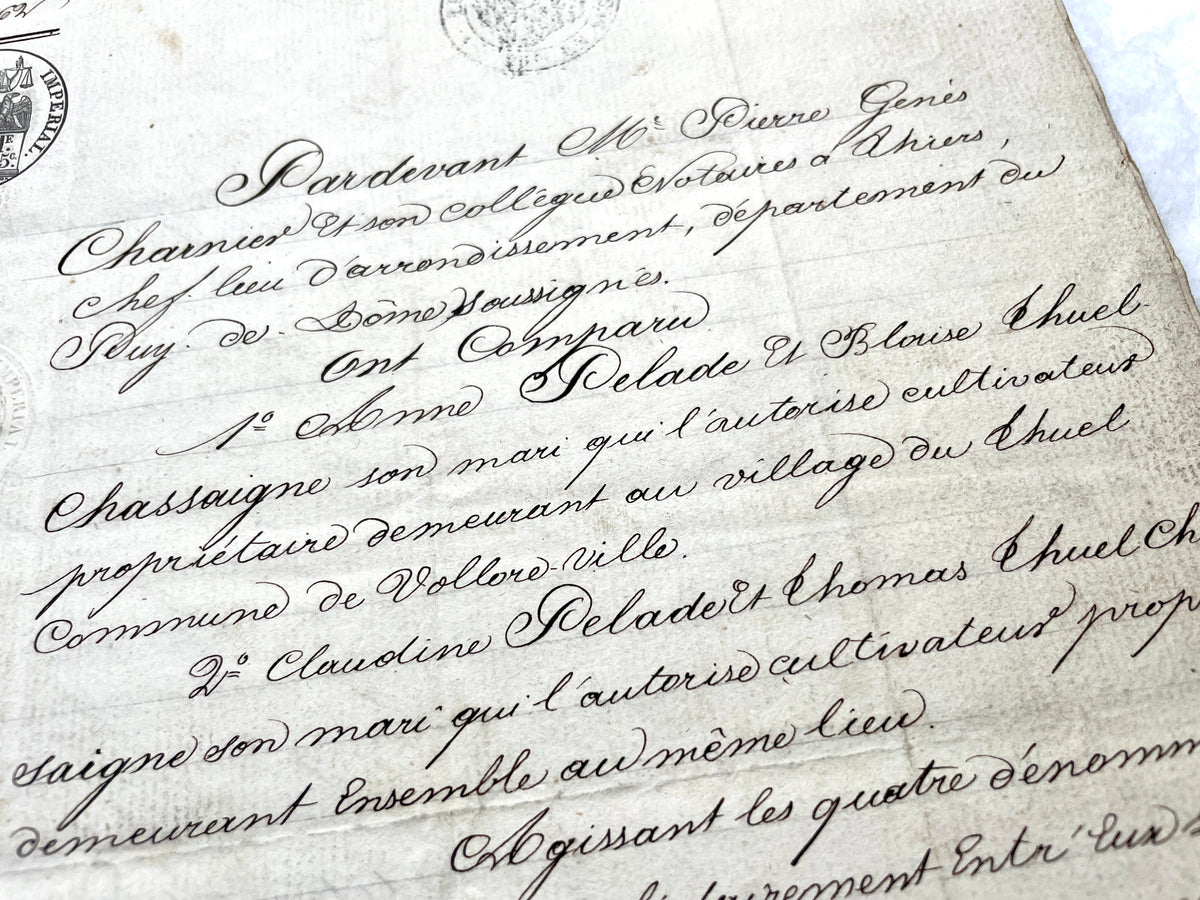 IMPERIAL.
Pardevant Me Pierre Genés
Charnier Et son collégue Notaires a Thiers,
chef. lieu d'arrondissement, département du
Puy. de. Dôme, soussignés.
Ont Comparu
1o Anne Pelade Et Blaise Thuel
Chassaigne son mari qui l'autorise cultivateur
propriétaire demeurant au village du Thuel
Commune de Vollore-ville.
2o Claudine Pelade Et Thomas Thuel Ch
saigne son mari qui l'autorise cultivateur prop
demeurant Ensemble au même lieu.
Agissant les quatre dénomm
Entr' Eux